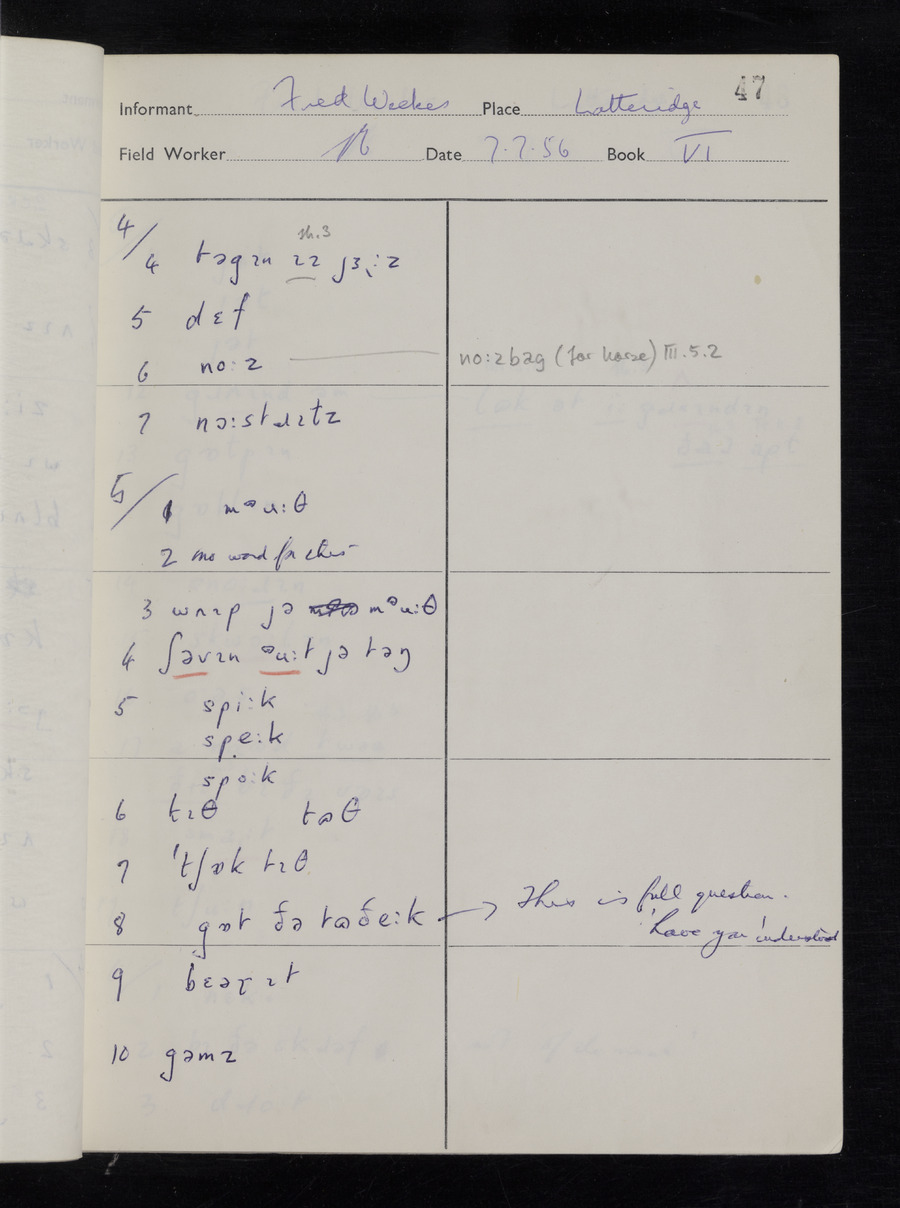 47
Informant Fred Weekes Place Latteridge
Field Worker Date 7.7.56 Book VI
4/
sh.3
4 təgɪn ɪz jɜ˞:z
5 dɛf
6 no:z no:zbæg (for horse) III.5.2
7 nɔ:stɹɪtz
5/
1 mᵊu:θ
2 no word for this
3 wʌɪp jə mᵊu:θ
4 ʃəvɪn ᵊu:t jə təŋ
5 spi:k
spe:k
spo:k
6 tɪθ tʊθ
7 'tʃɒk tɪθ
8 gɒt ðə tʊðe:k → This is full question.
'have you' understood
9 bɛəɽɪt
10 gəmz